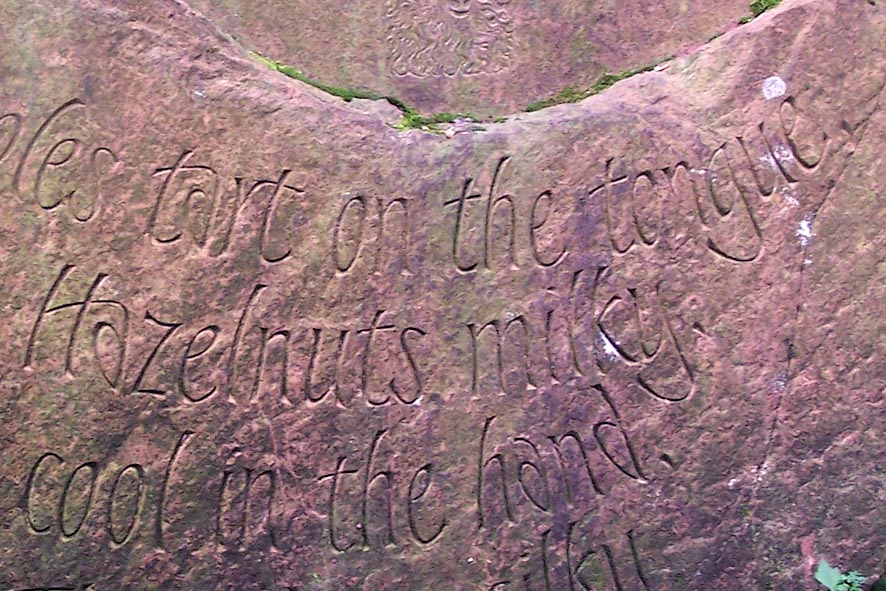 tart on the tongue,
Hazelnuts milky,
cool in the hand.